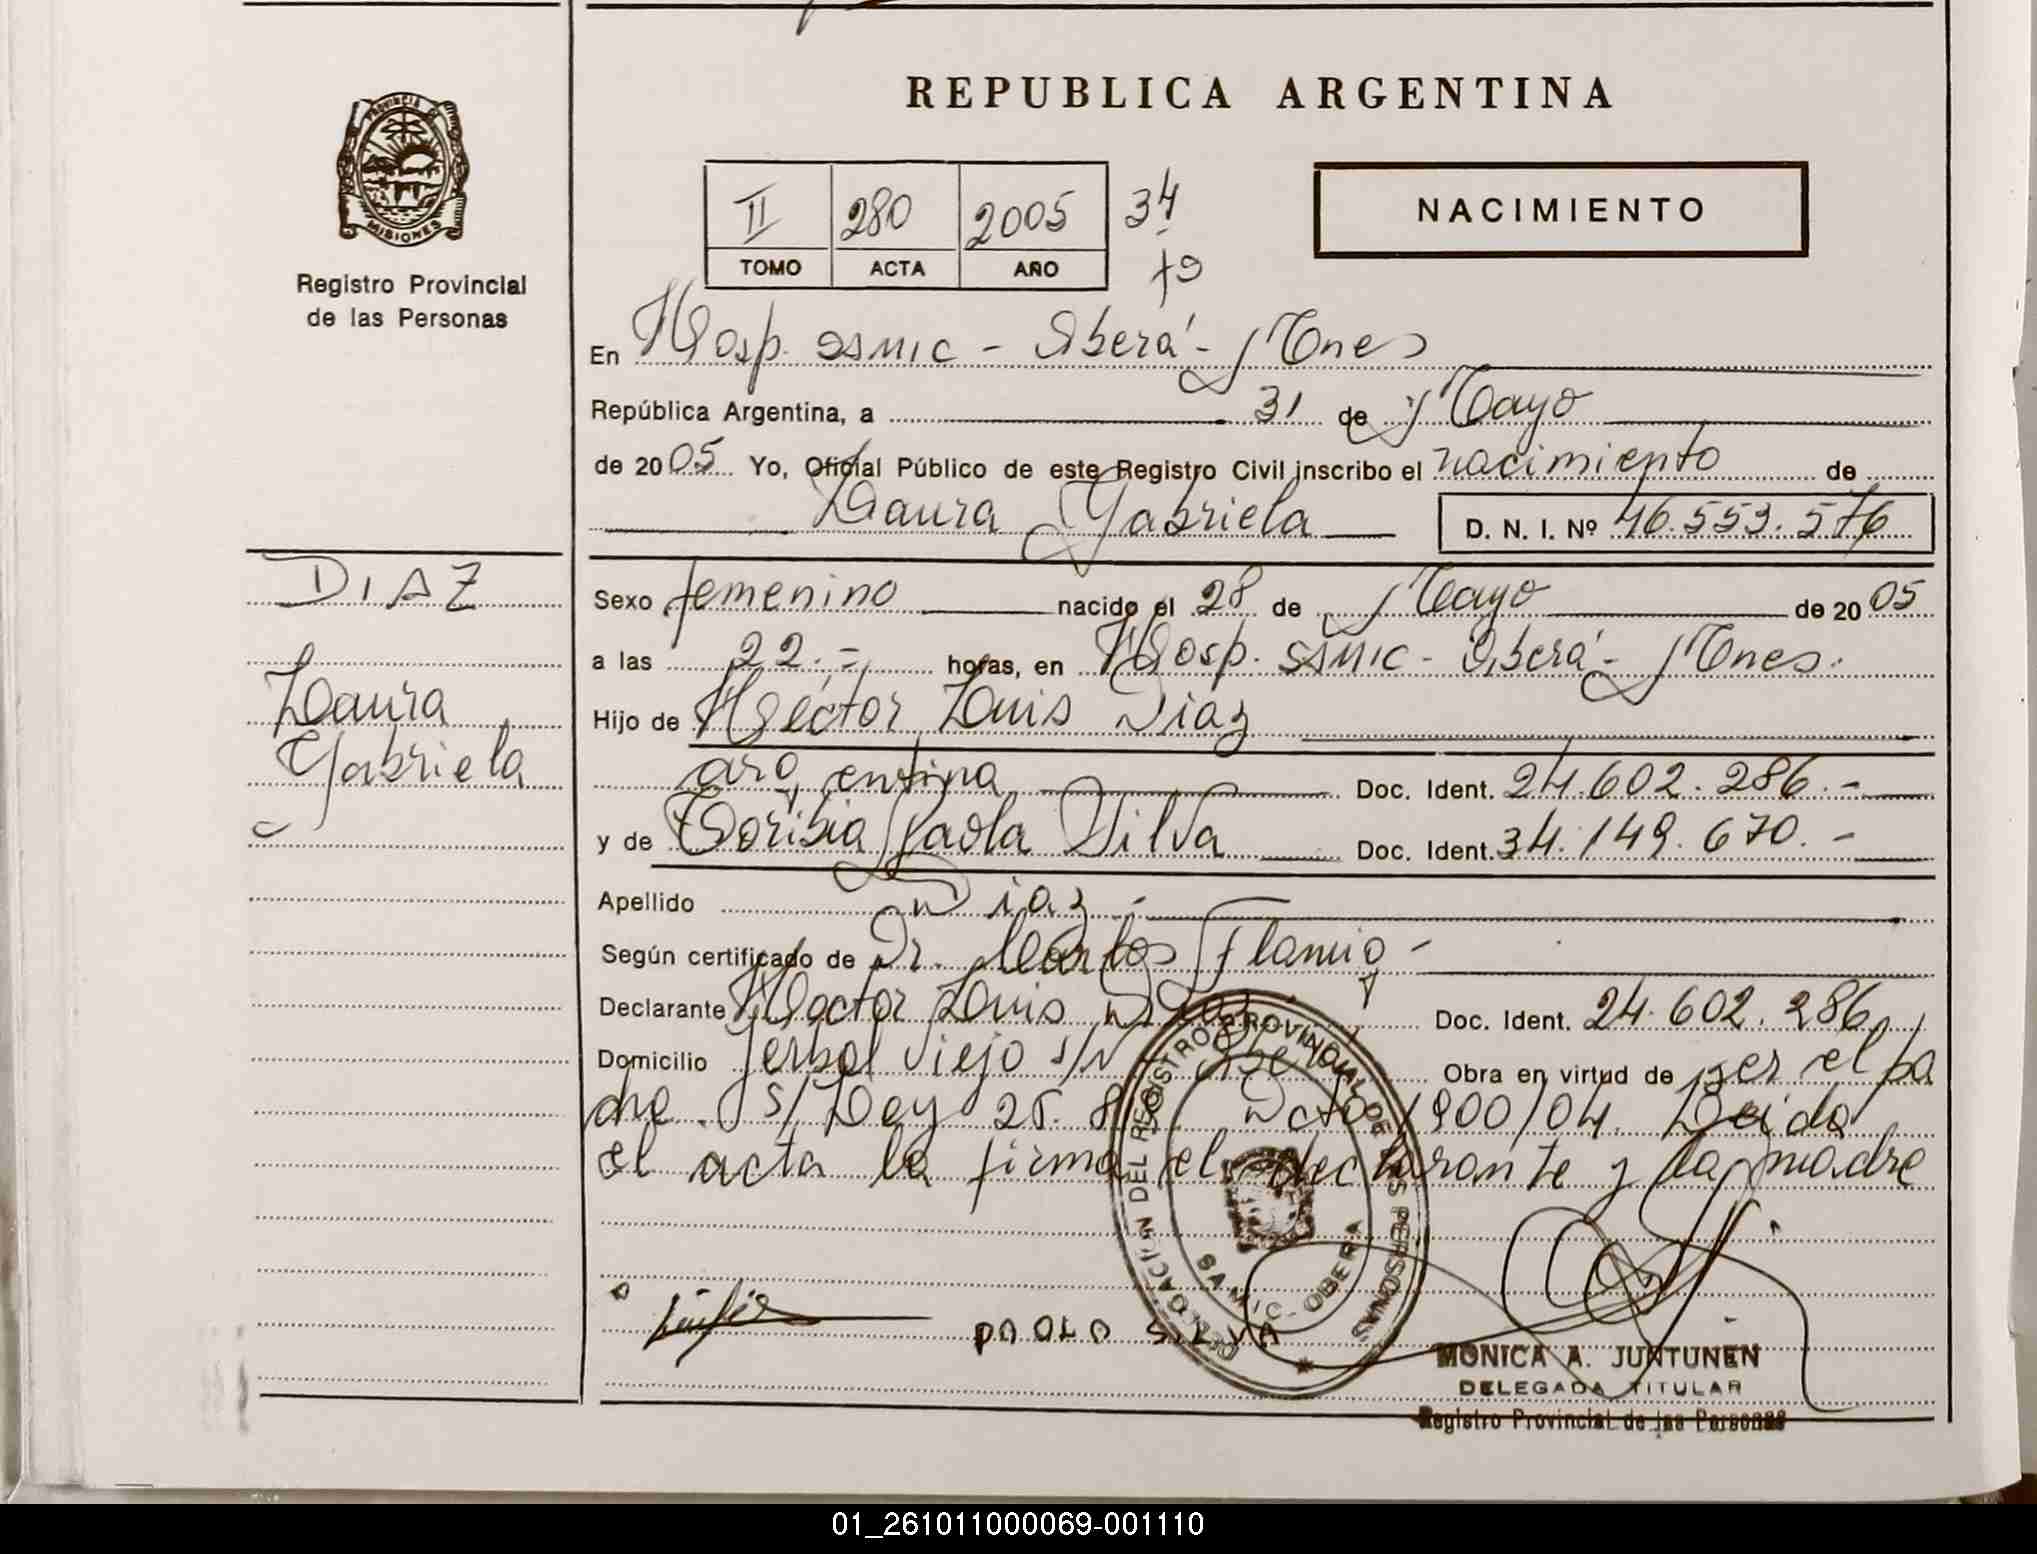 REPUBLICA ARGENTINA
PROVINCIA DE
MISIONES
Registro Provincial
de las Personas
II 280 2005 34
TOMO ACTA AÑO
NACIMIENTO
En Hosp. SAMIC - Oberá - Mnes
República Argentina, a 31 de Mayo
de 2005 Yo, Oficial Público de este Registro Civil inscribo el nacimiento de
Laura Gabriela D. N. I. Nº 46.553.576
DIAZ
Laura
Gabriela
Sexo femenino nacido el 28 de Mayo de 2005
a las 22.= horas, en Hosp. SAMIC - Oberá - Mnes.
Hijo de Héctor Luis Diaz
argentina Doc. Ident. 24.602.286.-
y de Toribia Paola Silva Doc. Ident. 34.149.670.-
Apellido Diaz.-
Según certificado de Dr. Carlos -
Declarante Hector Luis Diaz Doc. Ident. 24.602.286
Domicilio Yerbal Viejo s/N Oberá Obra en virtud de ser el pa
dre. S/Ley Dcto 1900/04. Leida
el acta la firma el declarante y la madre
DELEGACION DEL REGISTRO PROVINCIAL DE LAS PERSONAS
SAMIC - OBERA
PAOLA SILVA
MONICA A. JUNTUNEN
DELEGADA TITULAR
Registro Provincial de las Personas
01_261011000069-001110